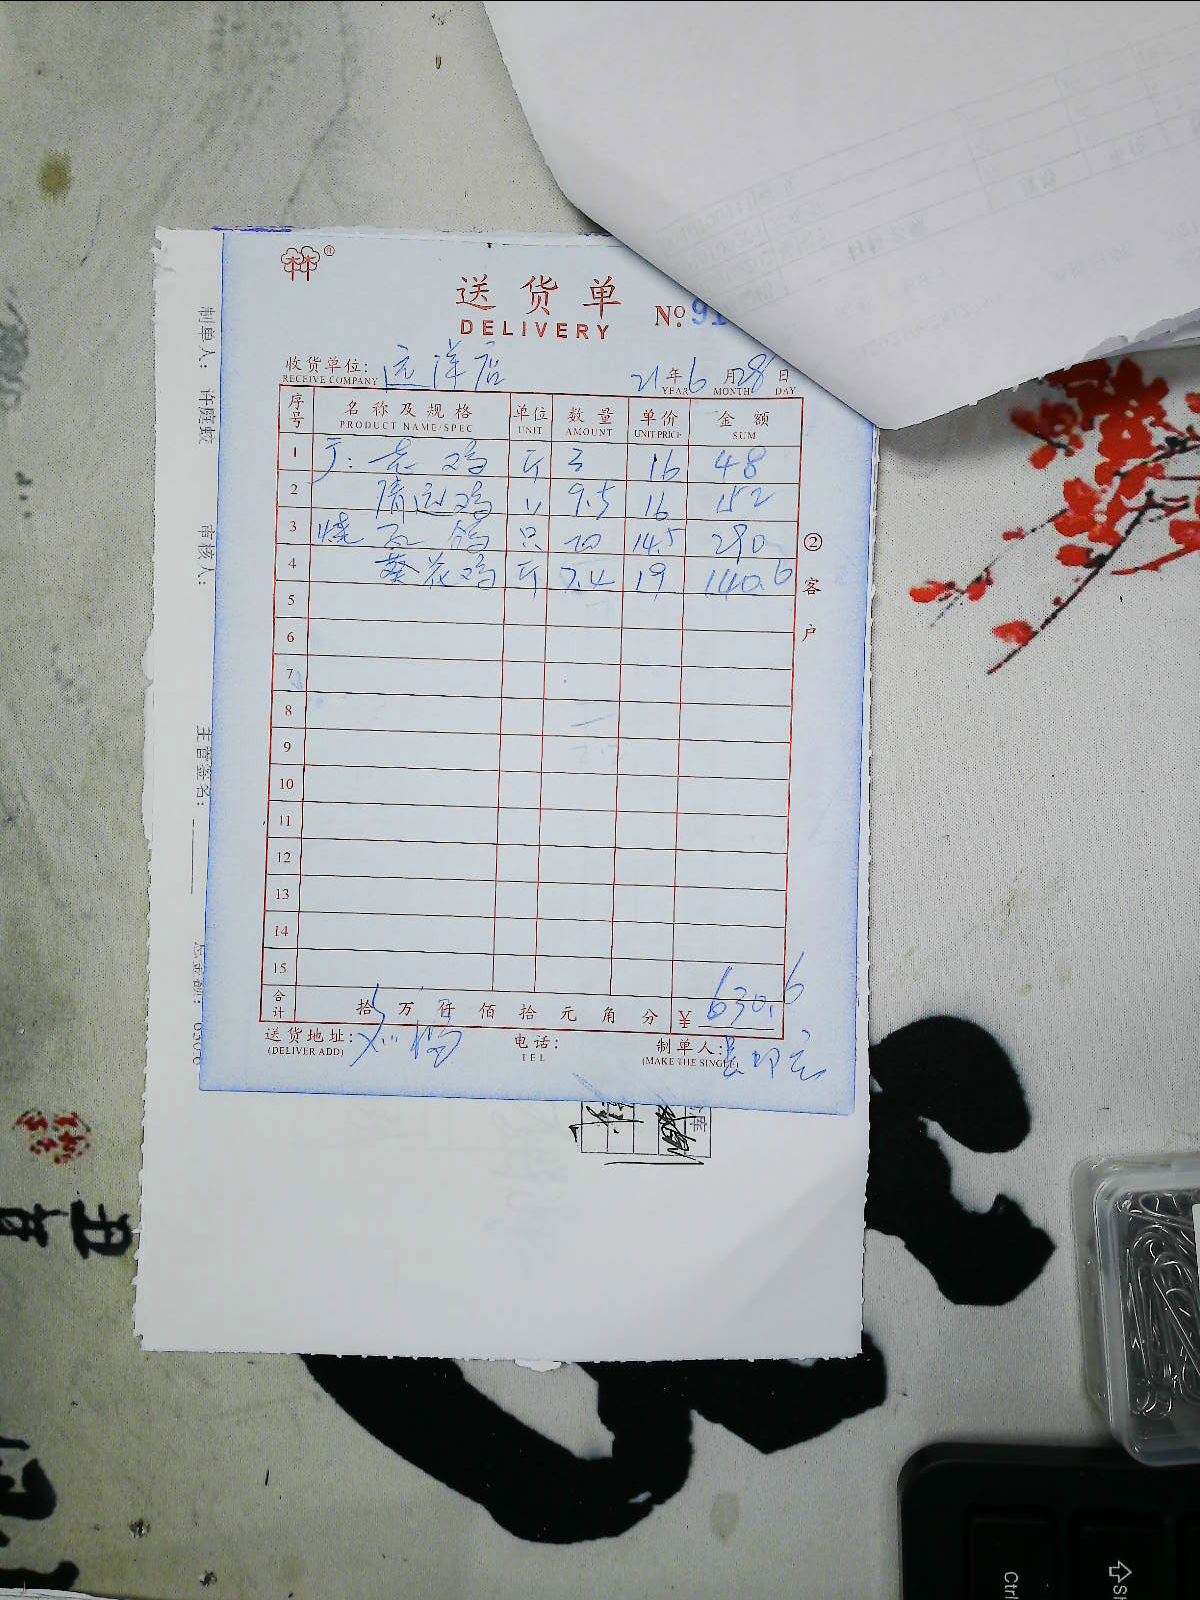 送货单
DELIVERY
№ 91
收货单位: 远洋店
RECEIVE COMPANY
21年6月28日
YEAR MONTH DAY
序号 名称及规格 单位 数量 单价 金额
PRODUCT NAME/SPEC UNIT AMOUNT UNIT PRICE SUM
1 老鸡 斤 3 16 48
2 清远鸡 〃 9.5 16 152
3 烧 鸽 只 20 14.5 290
4 葵花鸡 斤 7.4 19 140.6
5
6
7
8
9
10
11
12
13
14
15
合计 拾 万 仟 佰 拾 元 角 分 ¥ 630.6
送货地址: 电话: 制单人:
(DELIVER ADD) TEL (MAKE THE SINGLE)
②客户
制单人: 许庭蛟
审核人:
主管签名:
总金额:
丑
Ctrl